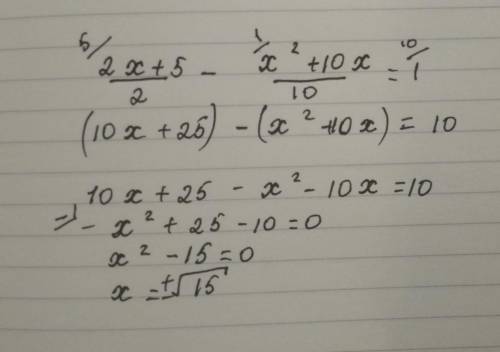 5/ (2x + 5)/2 - 1/ (x² + 10x)/10 = 10/ 1
(10x + 25) - (x² + 10x) = 10
10x + 25 - x² - 10x = 10
=> - x² + 25 - 10 = 0
x² - 15 = 0
x = ±√15